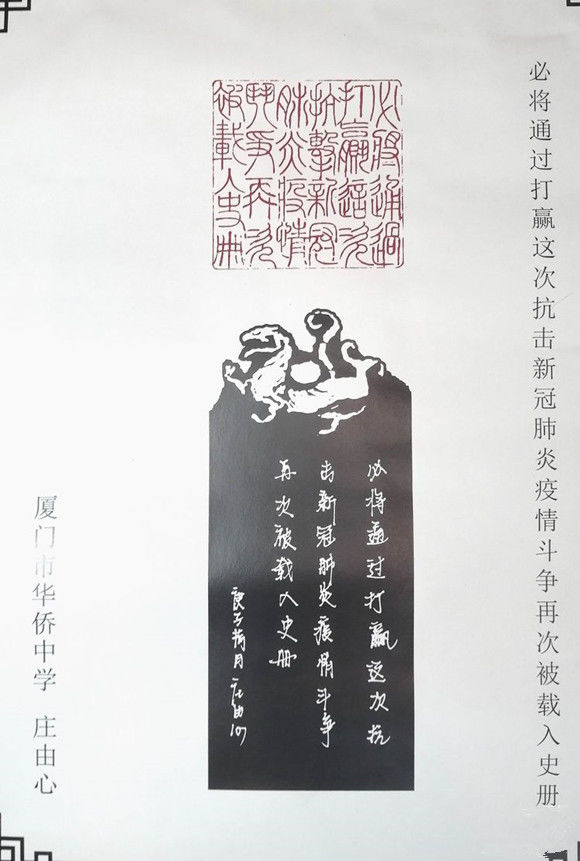 必将通过打赢这次抗击新冠肺炎疫情斗争再次被载入史册
必將通過
打贏這次
抗擊新冠
肺炎疫情
鬥爭再次
被載入史冊
必将通过打赢这次抗
击新冠肺炎疫情斗争
再次被载入史册
庚子荷月 庄由心
厦门市华侨中学 庄由心